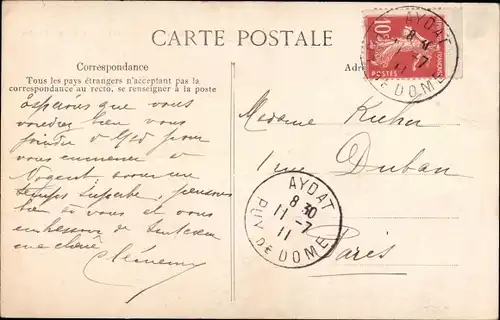 CARTE POSTALE
Correspondance
Tous les pays étrangers n'acceptant pas la
correspondance au recto, se renseigner à la poste
Adre
10c
POSTES
AYDAT
8
11
PUY DE DOME
Espérons que vous
voudrez bien vous
joindre
pour
vous emmener à
Nogent, avons un
temps superbe, pensons
bien à vous et vous
embrassons de tout cœur
Clémence
Madame
1 rue Duban
Paris
AYDAT
8 30
11 -7
11
PUY DE DOME